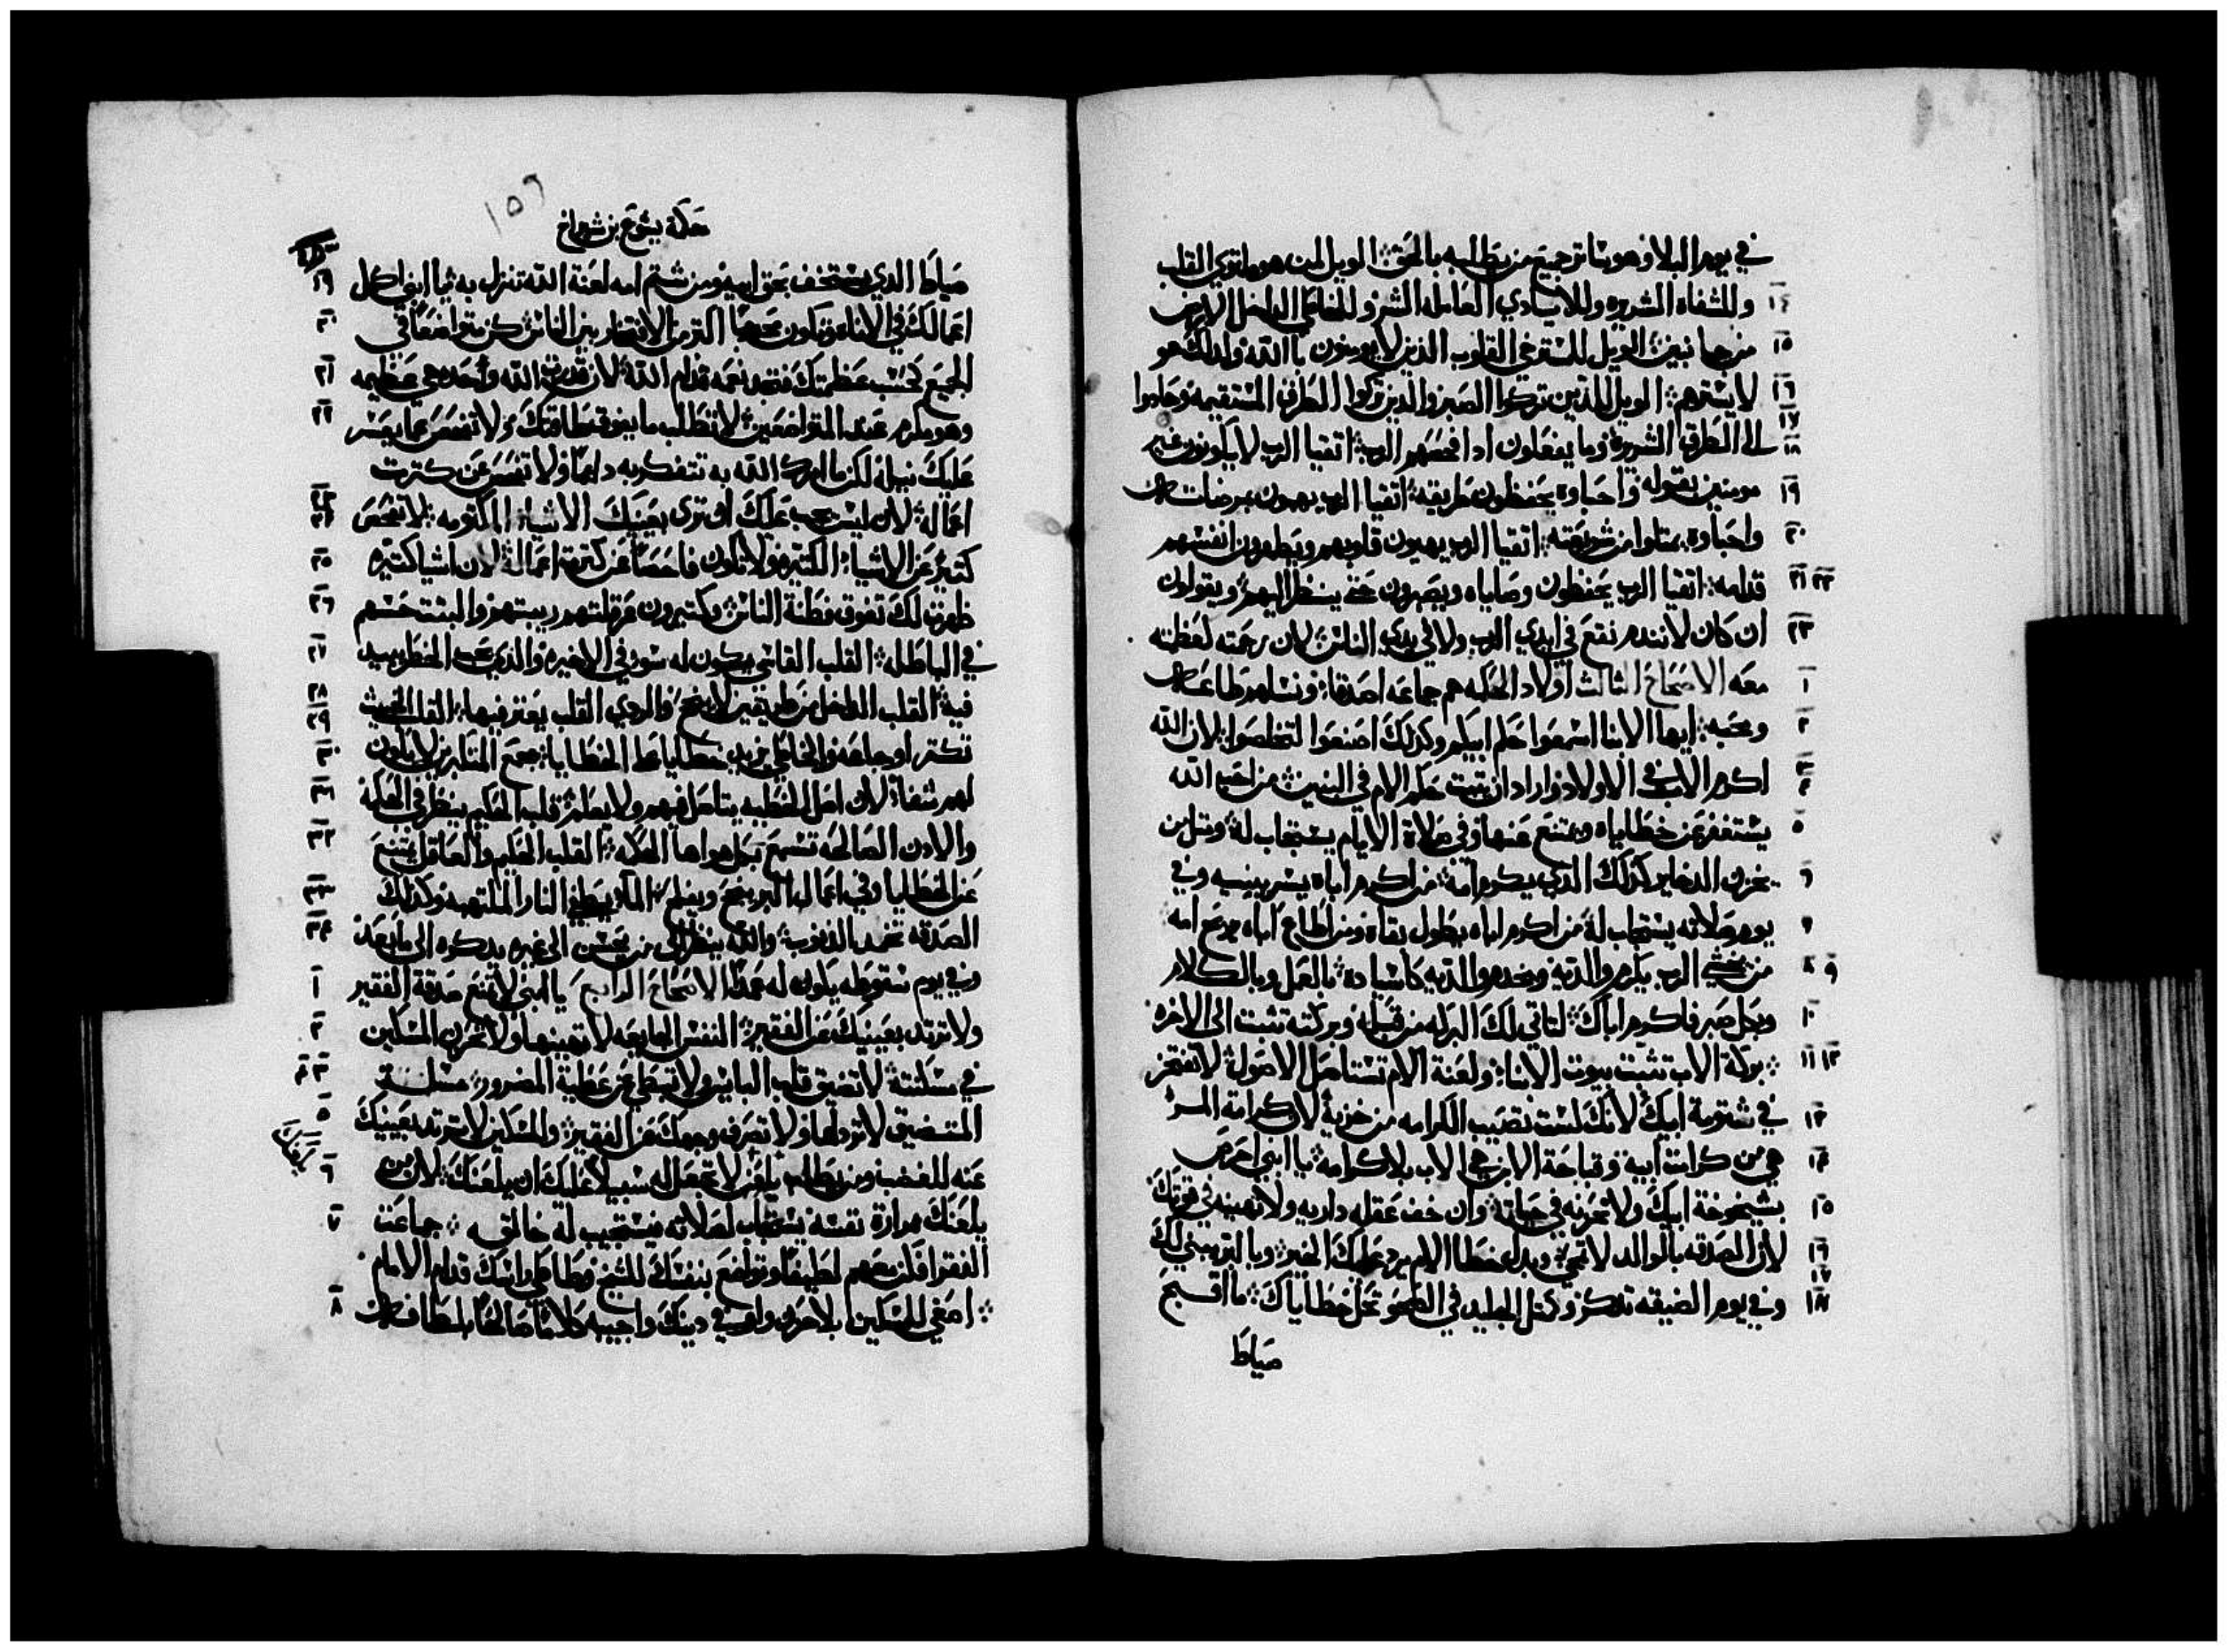 في يوم البلا وهو ساتر جميع من يطلبه بالحق الويل لمن هو ملتوي القلب
١٤ وللشفاه الشريره وللايادي العامله الشر وللخاطي الداخل الارض
١٥ من جانبين الويل للمسترخي القلوب الذين لا يومنون باالله ولدلك هو
١٦ لا يسترهم الويل للذين تركوا الصبر والذين تركوا الطرق المستقيمه وحادوا
١٧ ١٨ الى الطرق الشريره وما يفعلون ادا فحصهم الرب اتقيا الرب لا يكونون غير
١٩ مومنين بقوله واحباوه يحفظون طريقه اتقيا الرب يهمون بمرضاته
٢٠ واحباوه يمتلوا من شريعته اتقيا الرب يهيون قلوبهم ويطهرون انفسهم
٢١ ٢٢ قدامه اتقيا الرب يحفظون وصاياه ويصبرون حتى ينظر اليهم ويقولون
٢٣ ان كان لا نندم نقع في ايدي الرب ولا في يدي الناس لان رحمته لعظمته
١ معه الاصحاح الثالث اولاد الحكمه هم جماعه اصدقا ونسلهم طاعه
٢ ومحبه ايها الابنا اسمعوا حكم ابيكم وكدلك اصنعوا لتخلصوا لان الله
٣ ٤ اكرم الاب في الاولاد واراد ان يتبت حكم الام في البنين من احب الله
٥ يستغفر عن خطاياه ويمتنع عنها وفي صلاة الايام يستجاب له ومتل من
٦ يخزن الدخاير كذلك الذي يكرم امه من اكرم اباه يسر ببنيه وفي
٧ يوم صلاته يستجاب له من اكرم اباه يطول بقاه ومن اطاع اباه يريح امه
٨ ٩ من يخشي الرب يكرم والديه ويخدم والديه كاسياده بالعمل وبالكلام
١٠ وبكل صبر فاكرم اباك لتاتي لك البركه من قبله وبركته تتبت الى الاخره
١١ ١٢ بركة الاب تثبت بيوت الابنا ولعنة الام تستاصل الاصول لا تفتخر
١٣ في شتومة ابيك لانك لست تصيب الكرامه من خزيه لان كرامة المرء
١٤ هي من كرامت ابيه وقباحة الابن هي الاب بلا كرامه يا ابني احرص
١٥ بشيخوخة ابيك ولا تحزنه في حياته وان خف عقله داريه ولا تهينه في قوتك
١٦ ١٧ لان الصدقه بالوالد لا تمحي وبدل خطا الام يرد عليك الخير وبالبر يبني لك
١٨ وفي يوم الضيقه تدكر وكتل الجليد في الصحو تحل خطاياك ما اقبح
صياط
١٥٦
حكمة يشوع بن شيراخ
١٩ صياط الدي يستخف بحق ابيه ومن شتم امه لعنة الله تنزل به يا ابني كل
٢٠ اعمالك في الاناه وتكون محبوبا اكتر من الافتخار بين الناس كن متواضعا في
٢١ الجميع كحسب عظمتك فتجد نعمه قدام الله لان قدرت الله وحده هي عظيمه
٢٢ وهو مكرم عند المتواضعين لا تطلب ما يفوق طاقتك ولا تفحص عما يعسر
عليك نيله لكن ما امرك الله به تتفكر به دايما ولا تفحص عن كترت
٢٣ ٢٤ اعماله لان ليس يجب عليك ان ترى بعينك الاشيا المكتومه لا تفحص
٢٥ كتير عن الاشياء الكتيره ولا تكون فاحصا عن كترة اعماله لان اشيا كتيره
٢٦ ظهرت لك تفوق فطنة الناس وكتيرون عرقلتهم ريبتهم والبتت حسهم
٢٧ في الباطله القلب القاسي يكون له سو في الاخيره والذي يحب الخطر يبيد
٢٨ ٢٩ فيه القلب الداخل من طريقين لا ينجح والردي القلب يعتر فيها القلب الخبيث
٣٠ تكتر اوجاعه والخاطي يزيد خطايا على الخطايا جمع المتكبرين لا يكون
٣١ لهم شفا لان اصل الخطيه يتاصل فيهم ولا يعلم قلب الحكيم ينظر في الحكمه
٣٢ والادن الصالحه تسمع بكل هواها الحكمه القلب الحكيم والعاقل يمتنع
٣٣ عن الخطايا وفي اعمال البر ينجح ويفلح الما يطفي النار الملتهبه وكذلك
٣٤ الصدقه تخمد الدنوب والله ينظر الى من يحسن الى غيره يدكره الى ما بعد
١ وفي يوم سقوطه يكون له عمدا الاصحاح الرابع يا ابني لا تمنع صدقة الفقير
٢ ولا ترتد بعينيك عن الفقير النفس الجايعه لا تهينها ولا تحزن المسكين
٣ ٤ في مسكنته لا تضيق قلب البايس ولا تبطي عن عطية المضرور مسلة
٥ المتضيق لا ترذلها ولا تصرف وجهك عن الفقير والمسكين لا ترتد بعينيك
٦ عنه للغضب ومن يطلب لا تجعل له سبيلا عليك ان يلعنك لان من
٧ يلعنك بمرارة نفسه يستجاب لصلاته فيستجيب له خالقه جماعت
الفقرا فكن معهم لطيفا وتواضع بنفسك للشيخ وطاطي راسك قدام الامام
٨ اصغي للمسكين بلا حزن واوفي دينك واجيبه كلاما صالحا بلطافه